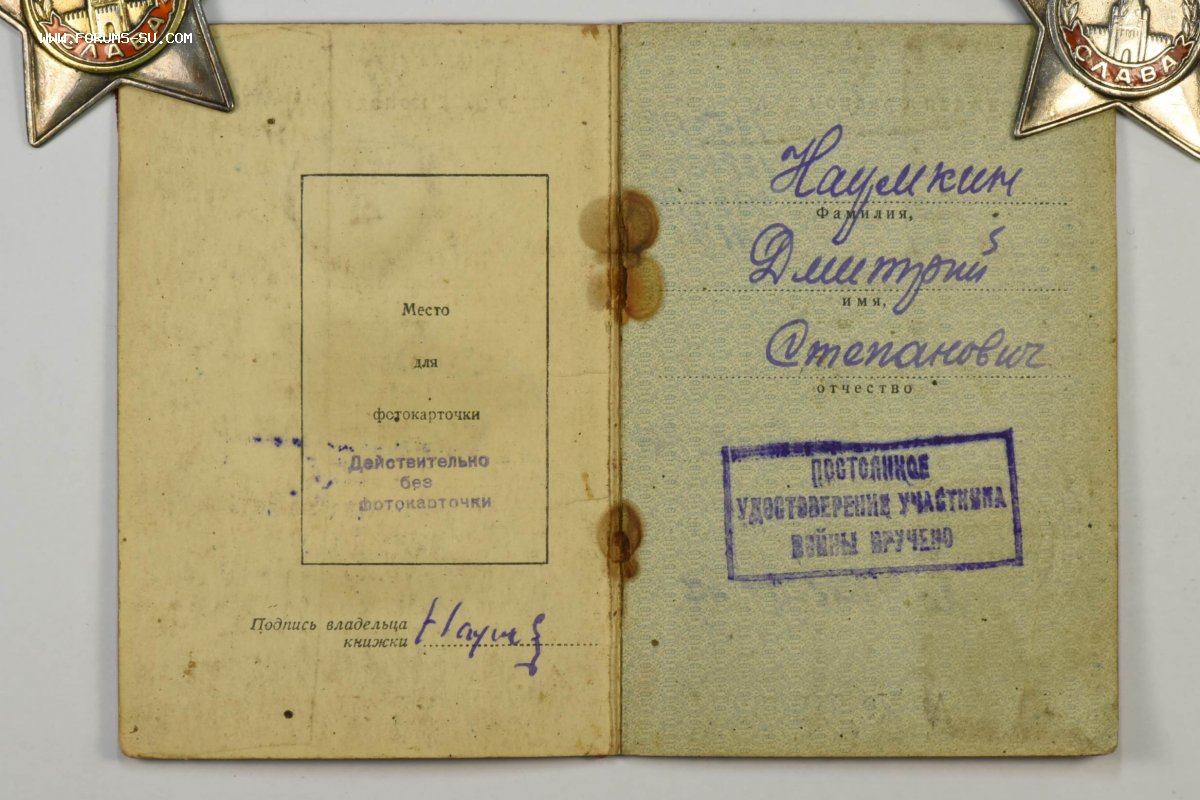 www.forums-su.com
СЛАВА
СЛАВА
Место
для
фотокарточки
Действительно
без
фотокарточки
Подпись владельца
книжки
Наумкин
Фамилия,
Дмитрий
имя,
Степанович
отчество
ПОСТОЯННОЕ
УДОСТОВЕРЕНИЕ УЧАСТНИКА
ВОЙНЫ ВРУЧЕНО